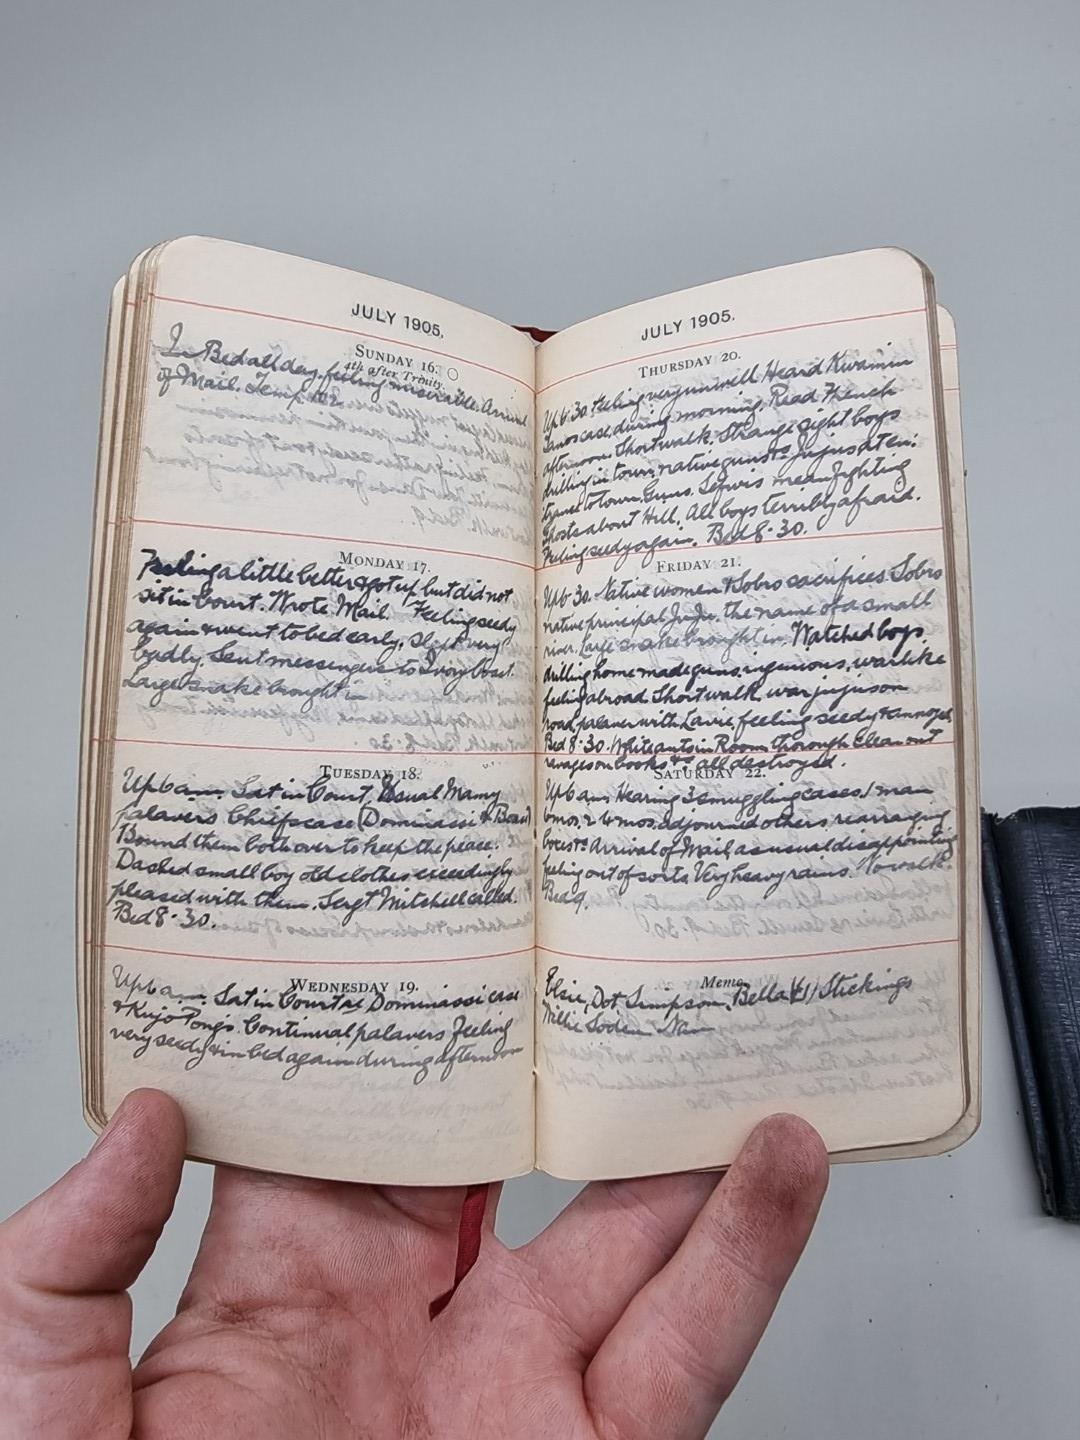 JULY 1905.
SUNDAY 16.
4th after Trinity.
In Bed all day, feeling miserable. Arrival
of Mail. Temp 102
MONDAY 17.
Feeling a little better & got up but did not
sit in Court. Wrote Mail. Feeling seedy
again & went to bed early, slept very
badly. Sent messengers to Ivory Coast.
Large snake brought in
TUESDAY 18.
Up 6 am. Sat in Court. Usual Mamy
palavers Chiefs case (Dominassi &
Bound them both over to keep the peace.
Dashed small boy old clothes exceedingly
pleased with them. Sergt Mitchell called.
Bed 8.30.
WEDNESDAY 19.
Up 6 am. Sat in Court re Dominassi case
& Kujo Fongs. Continual palavers Feeling
very seedy & in bed again during afternoon
JULY 1905.
THURSDAY 20.
Up 6.30. Feeling very unwell Heard Kwamin
case, during morning. Read French
afternoon. Short walk. Strange sight boys
drilling in town, native guns & Jujus at en:
trance to town. Guns. mean fighting
Ghosts about Hill. All boys terribly afraid.
Feeling seedy again. Bed 8.30.
FRIDAY 21.
Up 6.30. Native women & Sobro sacrifices. Sobro
native principal JuJu, the name of a small
river. Large snake brought in. Watched boys
drilling home made guns, ingenious, warlike
feeling abroad. Short walk, war jujus on
road, palaver with Lavie, feeling seedy & annoyed,
Bed 8.30. White ants in Room, thorough Clean out
ravages on books &c all destroyed.
SATURDAY 22.
Up 6 am. Hearing 3 smuggling cases, 1 man
6 mos, 2 4 mos. adjourned others, rearranging
Arrival of Mail, as usual disappointing
feeling out of sorts. Very heavy rains. No walk.
Bed 9.
Memo.
Elsie, Dot Simpson, Bella (£1) Stickings
Willie Soden